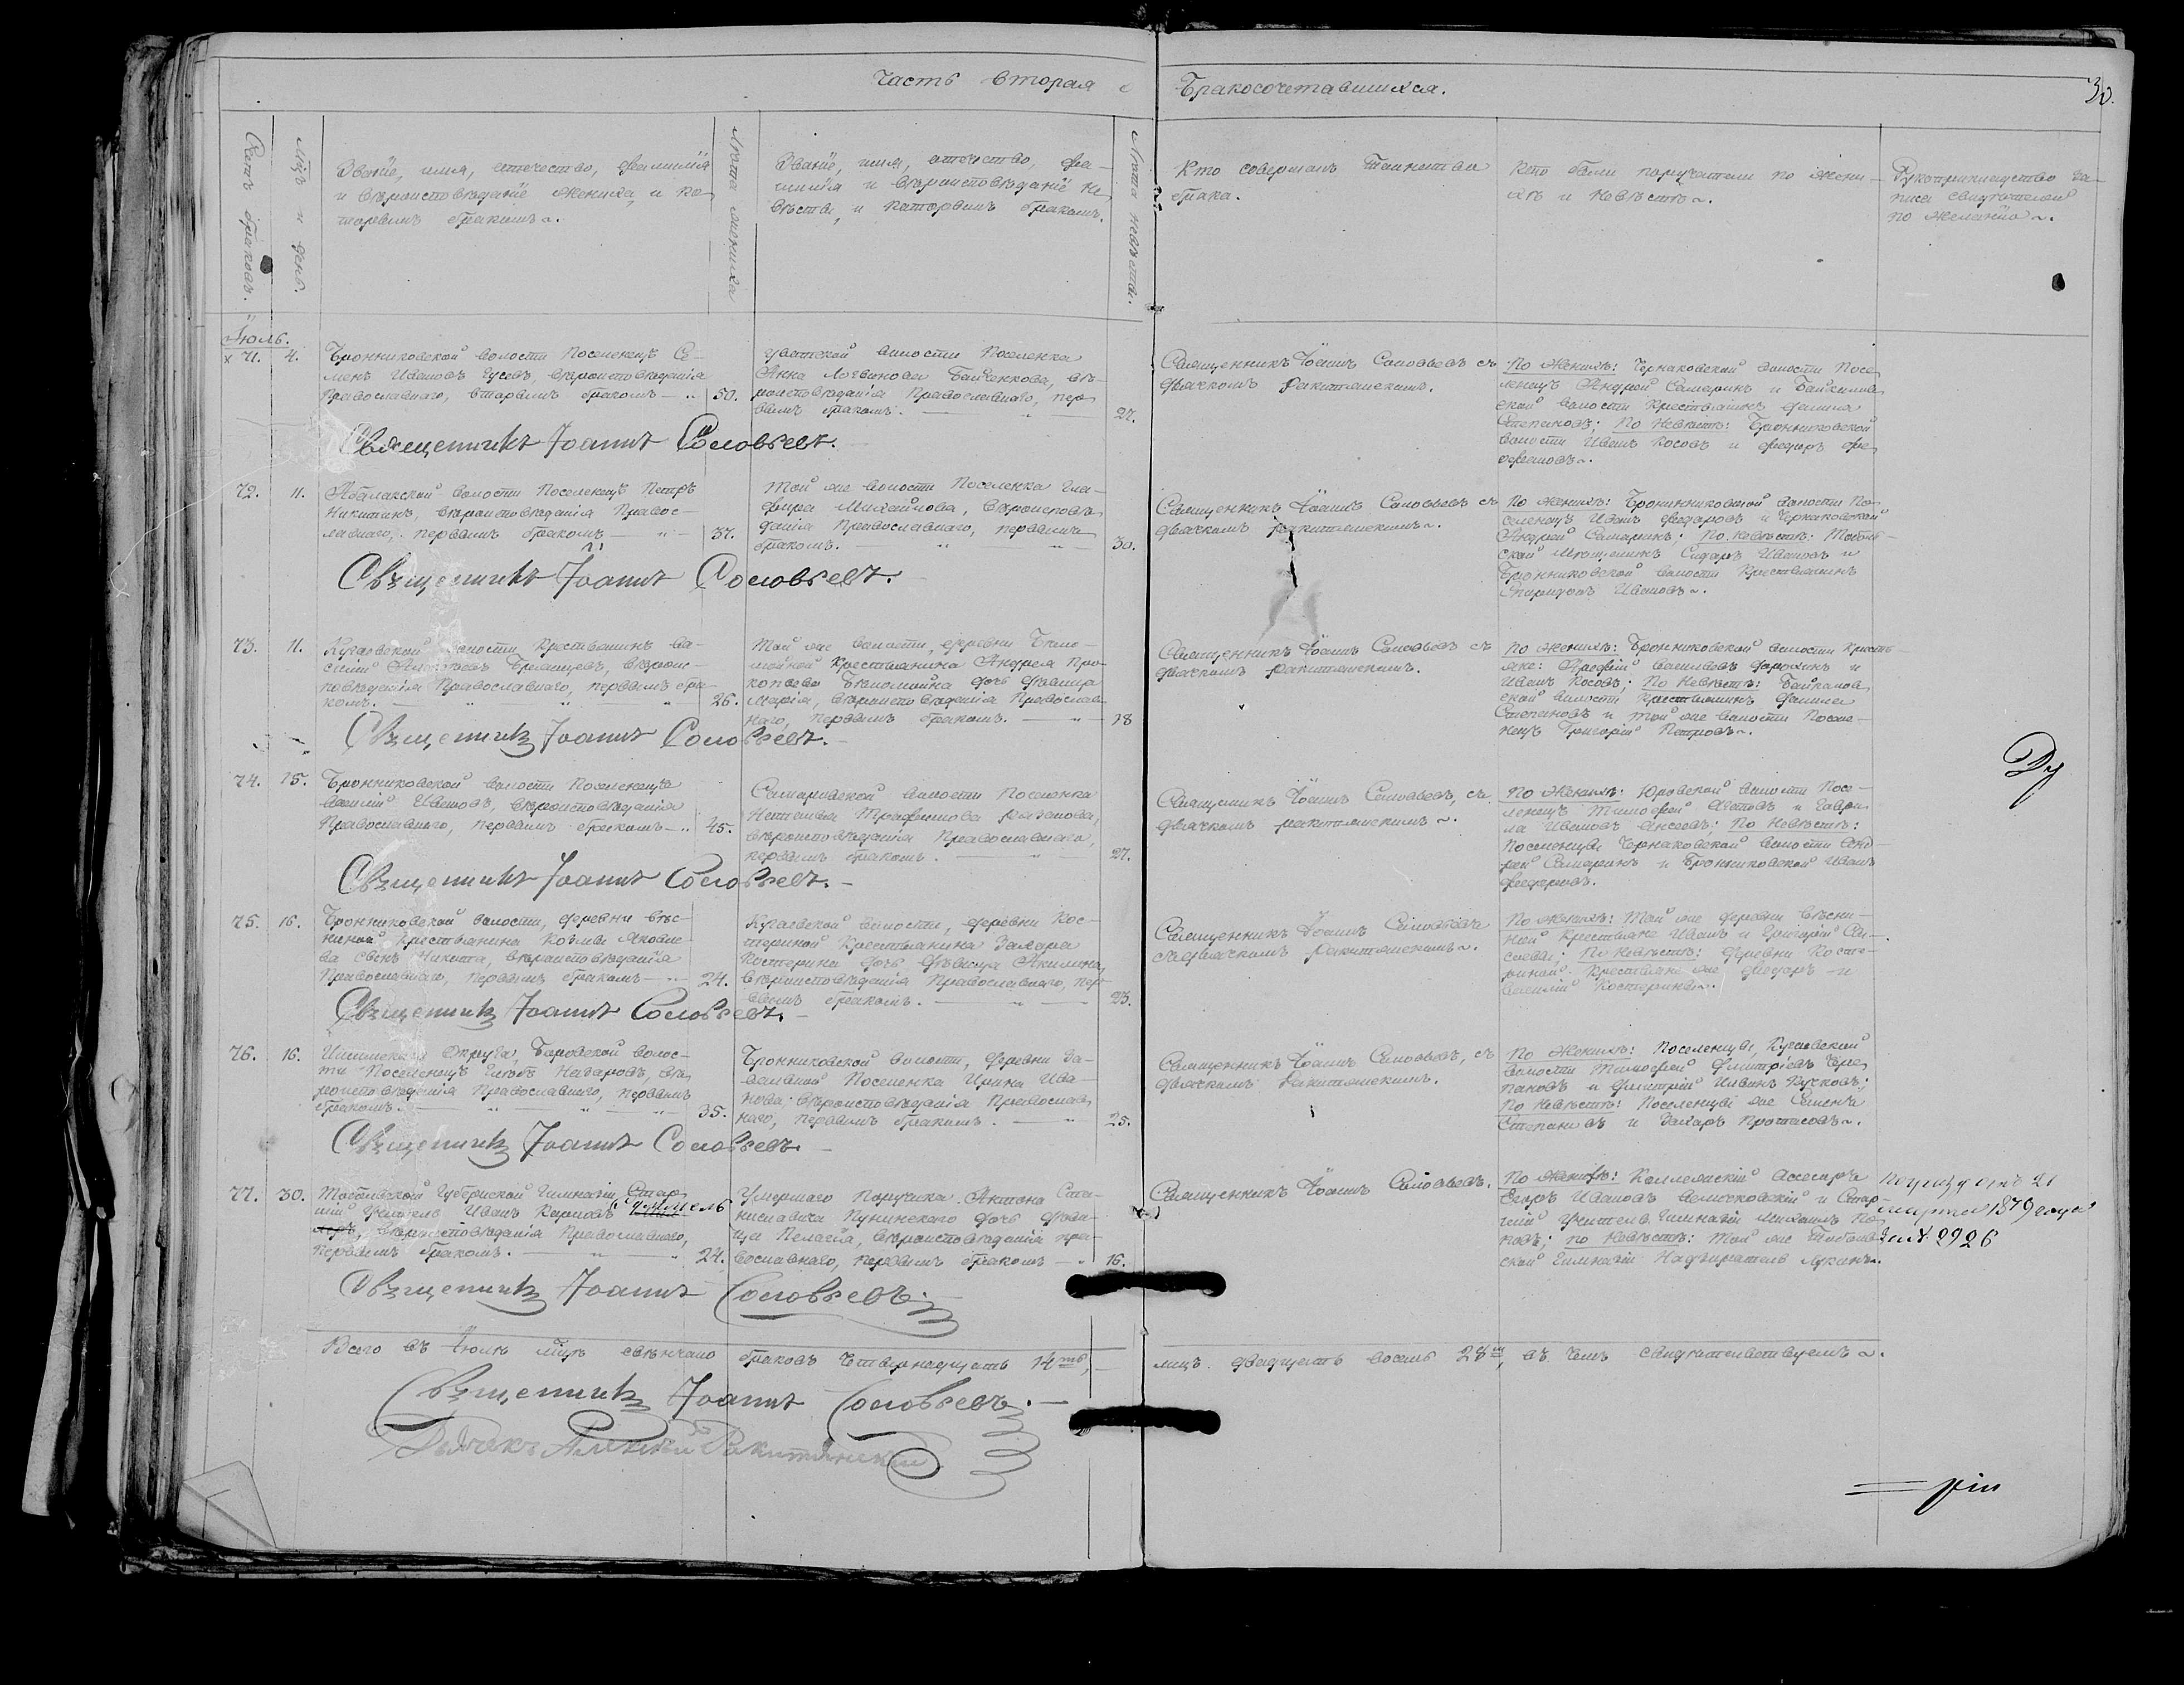 Часть вторая о Бракосочетавшихся.
30.
Счетъ браковъ.
Мѣсяцъ и день.
Званіе, имя, отечество, фамилія
и вѣроисповѣданіе жениха, и ко-
торымъ бракомъ.
Лѣта жениха
Званіе, имя, отечество, фа-
милія и вѣроисповѣданіе не-
вѣсты, и каторымъ бракомъ.
Лѣта невѣсты.
Кто совершалъ таинство
брака.
Кто были поручители по жени-
хѣ и невѣстѣ.
Рукоприкладство за-
писи свидѣтелей
по желанію.
Іюль.
71. 4.
Бронниковской волости Поселенецъ Се-
менъ Ивановъ Гусевъ, вѣроисповѣданія
Православнаго, вторымъ бракомъ 50.
волости Поселенка
Анна Логвинова Байченкова, вѣ-
роисповѣданія Православнаго, пер-
вымъ бракомъ. 27.
Священникъ Іоаннъ Соловьевъ съ
дьячкомъ Ракитянскимъ.
По Женихѣ: Чернаковской волости Посе-
ленецъ Андрей Самаринъ и
волости Крестьянинъ
Степановъ; По Невѣстѣ: Бронниковской
волости Иванъ Косовъ и Федоръ
Священникъ Іоаннъ Соловьевъ.
72. 11.
Абалакской волости Поселенецъ Петръ
Никитинъ, вѣроисповѣданія Правос-
лавнаго, первымъ бракомъ 37.
Той же волости Поселенка Гла-
фира Михайлова, вѣроисповѣ-
данія Православнаго, первымъ
бракомъ. 30.
Священникъ Іоаннъ Соловьевъ съ
дьячкомъ Ракитянскимъ.
По Женихѣ: Бронниковской волости По-
селенецъ Иванъ Федоровъ и Чернаковской
Андрей Самаринъ; По Невѣстѣ: Тоболь-
ской Мѣщанинъ Сидоръ Ивановъ и
Бронниковской волости Крестьянинъ
Спиридонъ Ивановъ.
Священникъ Іоаннъ Соловьевъ.
73. 11.
Кугаевской волости Крестьянинъ Ва-
силій вѣроис-
повѣданія Православнаго, первымъ бра-
комъ. 26.
Той же волости, деревни
Крестьянина Андрея Про-
копьева дочь дѣвица
Марія, вѣроисповѣданія Православ-
наго, первымъ бракомъ. 18
Священникъ Іоаннъ Соловьевъ съ
дьячкомъ Ракитянскимъ.
По Женихѣ: Бронниковской волости Кресть-
яне: Васильевъ и
Иванъ Косовъ; По Невѣстѣ:
волости Крестьянинъ
Степановъ и той же волости Поселе-
нецъ Григорій Петровъ.
Священникъ Іоаннъ Соловьевъ.
74. 15.
Бронниковской волости Поселенецъ
Василій Ивановъ, вѣроисповѣданія
Православнаго, первымъ бракомъ 45.
Самаровской волости Поселенка
Наталья Трофимова
вѣроисповѣданія Православнаго,
первымъ бракомъ. 27.
Священникъ Іоаннъ Соловьевъ, съ
дьячкомъ Ракитянскимъ.
По Женихѣ: Юровской волости Посе-
ленецъ Тимофей и Гаври-
ла Ивановъ По Невѣстѣ:
Поселенцы Чернаковской волости Анд-
рей Самаринъ и Бронниковской Иванъ
Федоровъ.
Священникъ Іоаннъ Соловьевъ.
75. 16.
Бронниковской волости, деревни
Крестьянина Козьмы Яковле-
ва сынъ Никита, вѣроисповѣданія
Православнаго, первымъ бракомъ 24.
Кугаевской волости, деревни Кос-
териной Крестьянина Захара
Костерина дочь дѣвица Акилина,
вѣроисповѣданія Православнаго, пер-
вымъ бракомъ. 23.
Священникъ Іоаннъ Соловьевъ
съ дьячкомъ Ракитянскимъ.
По Женихѣ: Той же деревни
Крестьяне Иванъ и Григорій
По Невѣстѣ: деревни Косте-
риной Крестьяне же Федоръ и
Василій Костерины.
Священникъ Іоаннъ Соловьевъ.
76. 16.
Ишимскаго Округа, Боровской волос-
ти Поселенецъ Глѣбъ Назаровъ, вѣ-
роисповѣданія Православнаго, первымъ
бракомъ. 35.
Бронниковской волости, деревни
Поселенка Ирина Ива-
нова, вѣроисповѣданія Православ-
наго, первымъ бракомъ. 25.
Священникъ Іоаннъ Соловьевъ, съ
дьячкомъ Ракитянскимъ.
По Женихѣ: Поселенцы, Кугаевской
волости Тимофей Дмитріевъ
и Дмитрій
По Невѣстѣ: Поселенцы же Семенъ
Степановъ и Захаръ Протасовъ.
Священникъ Іоаннъ Соловьевъ
77. 30.
Тобольской Губернской Гимназіи Стар-
шій Учитель Иванъ Карповъ
вѣроисповѣданія Православнаго,
первымъ бракомъ. 24.
Умершаго Поручика Антона Ста-
ниславича Пунинскаго дочь дѣви-
ца Пелагія, вѣроисповѣданія пра-
вославнаго, первымъ бракомъ 16.
Священникъ Іоаннъ Соловьевъ.
По Женихѣ: Коллежскій Ассесоръ
Егоръ Ивановъ и Стар-
шій Учитель Гимназіи Михаилъ По-
повъ; по Невѣстѣ: Той же Тоболь-
ской Гимназіи Надзиратель Лукинъ.
отъ 21
марта 1879 года
за № 2926
Священникъ Іоаннъ Соловьевъ.
Всего въ Іюлѣ м-цѣ свѣнчано браковъ четырнадцать 14ть,
лицъ двадцать восемь 28мь, въ чемъ свидѣтельствуемъ.
Священникъ Іоаннъ Соловьевъ.
Дьячекъ Алексѣй Ракитянскій